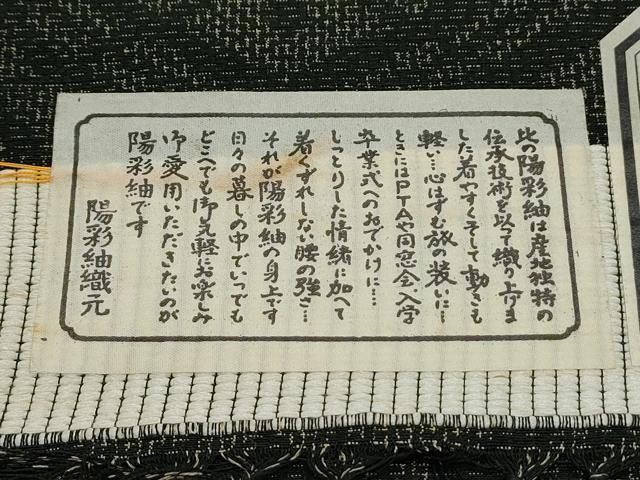 此の陽彩紬は産地独特の
伝承技術を以て織り上げま
した着やすくそして動きも
軽い…心はずむ旅の装いに…
ときにはPTAや同窓会、入学
卒業式へのおでかけに…
しっとりした情緒に加へて
着くずれしない腰の強さ…
それが陽彩紬の身上です
日々の暮しの中でいつでも
どこへでも御気軽にお楽しみ
御愛用いただきたいのが
陽彩紬です
陽彩紬織元